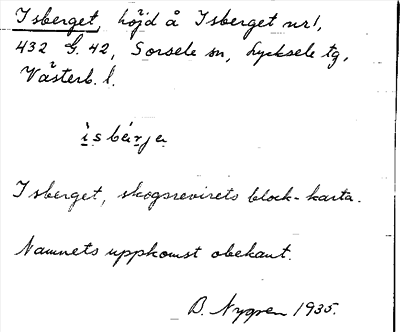 Isberget, höjd å Isberget nr 1,
432 G. 42, Sorsele sn, Lycksele tg,
Västerb. l.
ìsbérje
Isberget, skogsrevirets block-karta.
Namnets uppkomst obekant.
B. Nygren 1935.